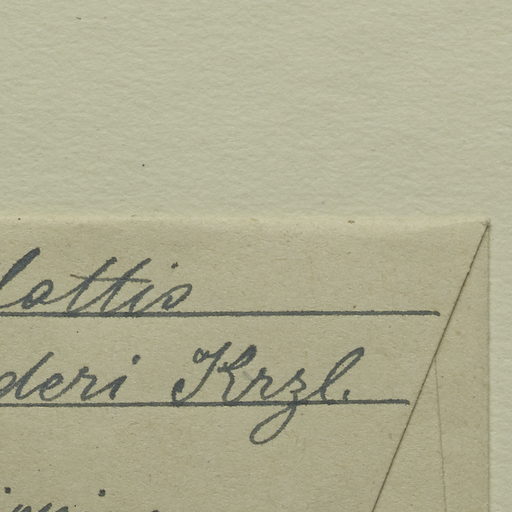 lottis
deri Krzl.